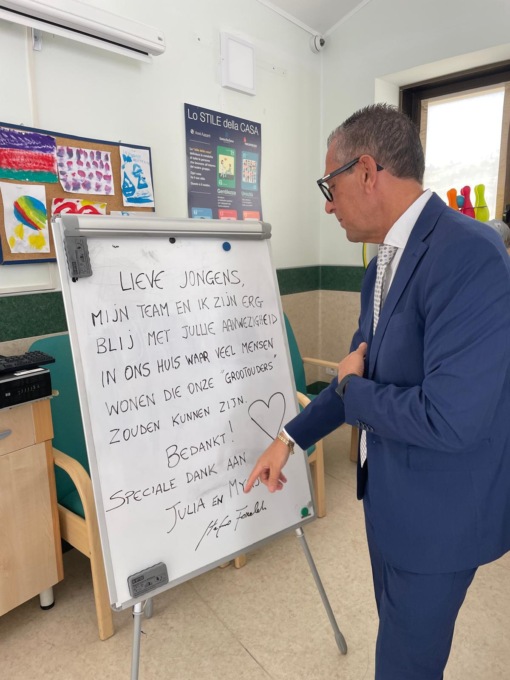 Lo STILE della CASA
LIEVE JONGENS,
MIJN TEAM EN IK ZIJN ERG
BLIJ MET JULLIE AANWEZIGHEID
IN ONS HUIS WAAR VEEL MENSEN
WONEN DIE ONZE "GROOTOUDERS"
ZOUDEN KUNNEN ZIJN.
BEDANKT!
SPECIALE DANK AAN
JULIA EN